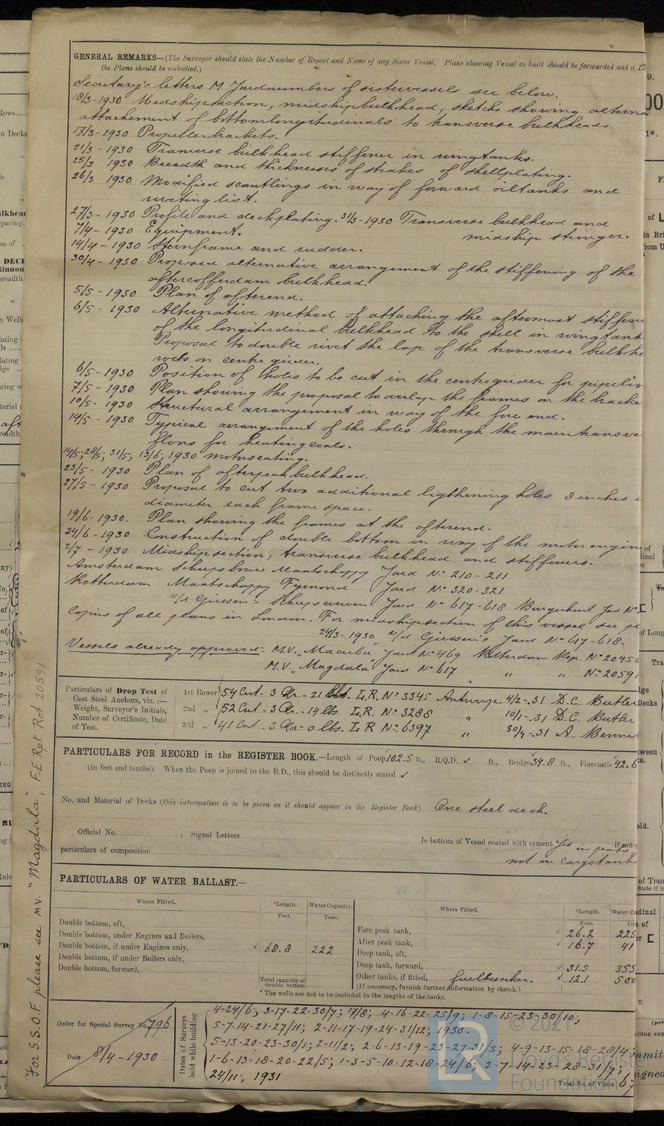 GENERAL REMARKS—(The Surveyor should state the Number of Report and Name of any Sister Vessel. Plans showing Vessel as built should be forwarded and a
the Plans should be embodied.)
Secretary's letters M Yardnumbers of sistervessels see below.
18/3-1930 Midshipsection, midshipbulkhead, sketch showing altern
attachement of bottomlongitudinals to transverse bulkheads.
17/3-1930 Propellerbrackets.
21/3-1930 Tranverse bulkhead stiffener in wingtanks.
25/3 1930 Breadth and thicknesses of strakes of shellplating.
26/3 1930 Modified scantlings in way of forward oiltanks and
rivetinglist.
27/3-1930 Profile and deckplating. 31/3-1930 Transverse bulkhead and
7/4-1930 Equipment. midship stringer.
14/4-1930 Sternframe and rudder.
30/4-1930 Proposed alternative arrangement of the stiffening of the
aftercofferdam bulkhead.
5/5-1930 Plan of afterend.
6/5-1930 Alternative method of attaching the aftermost stiffen
of the longitudinal bulkhead to the shell in wingtank
Proposal to double rivet the lap of the transverse bulkh
on centregirder.
6/5-1930 Position of holes to be cut in the centregirder for pipelin
7/5-1930 Plan showing the proposal to overlap the frames on the bracke
10/5-1930 Structural arrangement in way of the fore end.
14/5-1930 Typical arrangement of the holes through the maintransve
floors for heatingcoals.
14/5; 28/5; 31/5; 13/6; 1930 Motorseating.
23/5-1930 Plan of afterpeakbulkhead.
27/5-1930 Proposal to cut two additional ligthening holes 3 inches
diameter each frame space.
19/6-1930. Plan showing the frames at the afterend.
24/6-1930 Construction of double bottom in way of the motor engine
2/7-1930 Midshipsection, transverse bulkhead and stiffeners.
Amsterdam Scheepsbouw Maatschappy Yard No 210-211
Rotterdam Maatschappy Fyenoord Yard No 320-321
v/d Giessen's Scheepswerven Yard No 617-618
Copies of all plans in London. For midshipsection of this vessel see
24/3-1930, v/d Giessen's Yard No 617-618.
Vessels already approved: M.V. "Macuba" Yard No 469 Rotterdam Rep. No 2045
M.V. "Magdala" Yard No 617 " " No 20591
Particulars of Drop Test of
Cast Steel Anchors, viz.:—
Weight, Surveyor's Initials,
Number of Certificate, Date
of Test.
1st Bower 54 Cwt - 3 Qr. - 21 lbs. L.R. No 3345 Antwerp 4/2-31 D.C. Butler
2nd " 52 Cwt - 3 Qr - 14 lbs L.R. No 3288 " 10/1-31 D.C. Butler
3rd " 41 Cwt - 3 Qr - 0 lbs. L.R No 6397 " 30/4-31 A.
PARTICULARS FOR RECORD in the REGISTER BOOK.—Length of Poop 102.5 ft., R.Q.D. ✓ ft., Bridge 34.8 ft., Forecastle 42.6
(in feet and tenths). When the Poop is joined to the B.D., this should be distinctly stated ✓
No. and Material of Decks (this information is to be given as it should appear in the Register Book) One steel deck.
Official No. : Signal Letters
Is bottom of Vessel coated with cement Yes in peaks if not
particulars of composition not in cargotank
PARTICULARS OF WATER BALLAST.—
Where Fitted. *Length. Water Capacity
Feet. Tons.
Double bottom, aft,
Double bottom, under Engines and Boilers,
Double bottom, if under Engines only, ✓ 68.8 222
Double bottom, if under Boilers only,
Double bottom, forward,
Total capacity of double bottom
Where Fitted. *Length. Water C
Feet.
Fore peak tank, ✓ 26.2 225
After peak tank, ✓ 16.7 41
Deep tank, aft,
Deep tank, forward, ✓ 31.5 355
Other tanks, if fitted, fuelbunker. ✓ 12.1 500
(If necessary, furnish further information by sketch.)
* The wells are not to be included in the lengths of the tanks.
Order for Special Survey No. 796
Date 8/4-1930
Dates of Surveys held while building
4-24/6; 3-17-22-30/7; 7/8; 4-16-22-25/9; 1-8-15-23-30/10;
5-7-14-21-27/11; 2-11-17-19-24-31/12; 1930.
5-13-20-23-30/1; 2-11/2; 2-6-13-19-23-27-31/3; 4-9-13-15-18-28/4
1-6-13-18-20-22/5; 1-3-5-10-12-18-24/6; 3-7-14-23-28-31/7;
24/11, 1931
Total No. of Visits 6
For S.S.O.F. please see m.v. "Magdala", F.E Rpt. Rot. 20591
© 2021
Lloyd's Register
Foundation